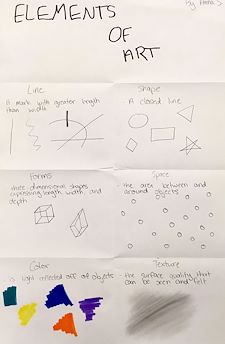 ELEMENTS
OF
ART
Line
A mark with greater length
than width
Shape
A closed line
Forms
three dimensional shapes
expressing length, width, and
depth
Space
the area between and
around objects
Color
light reflected off of objects
Texture
the surface quality that
can be seen and felt